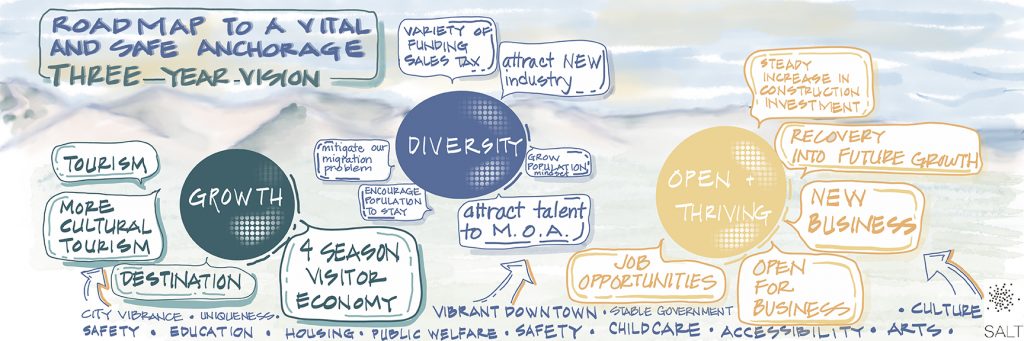 ROADMAP TO A VITAL
AND SAFE ANCHORAGE
THREE-YEAR-VISION
TOURISM
MORE
CULTURAL
TOURISM
DESTINATION
GROWTH
4 SEASON
VISITOR
ECONOMY
VARIETY OF
FUNDING
SALES TAX
attract NEW
industry
mitigate our
migration
problem
DIVERSITY
GROW
POPULATION"
mindset
ENCOURAGE
POPULATION
TO STAY
attract talent
to M.O.A.
STEADY
INCREASE IN
CONSTRUCTION
INVESTMENT
RECOVERY
INTO FUTURE GROWTH
OPEN +
THRIVING
NEW
BUSINESS
JOB
OPPORTUNITIES
OPEN
FOR
BUSINESS
CITY VIBRANCE • UNIQUENESS • VIBRANT DOWNTOWN • STABLE GOVERNMENT • CULTURE
SAFETY • EDUCATION • HOUSING • PUBLIC WELFARE • SAFETY • CHILDCARE • ACCESSIBILITY • ARTS •
SALT